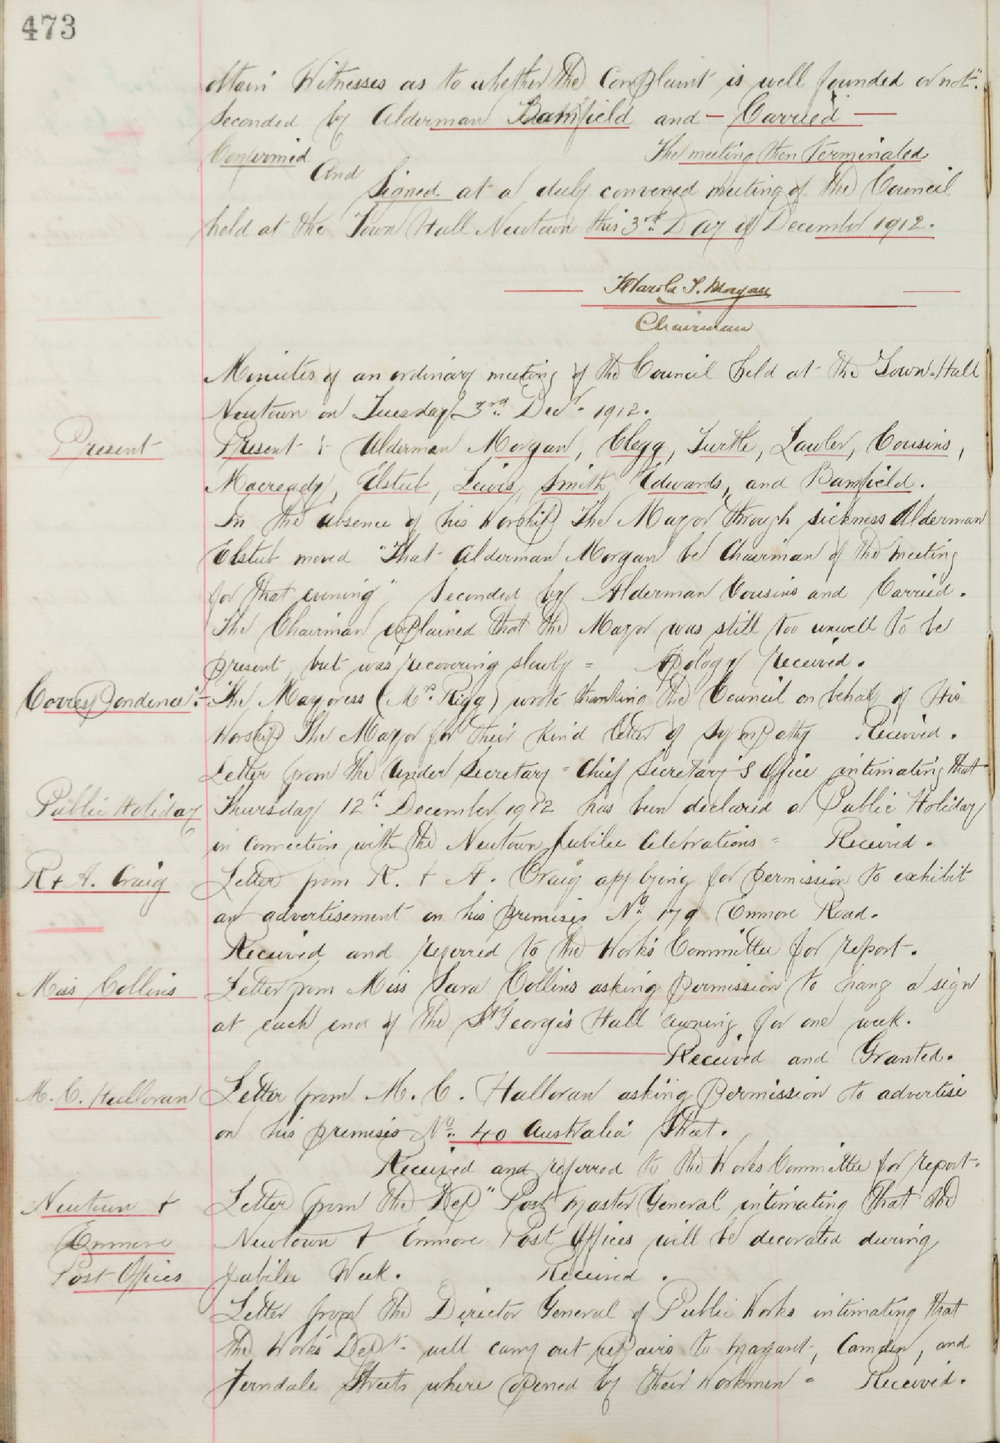 473
obtain Witnesses as to whether the Complaint is well founded or not".
Seconded by Alderman Bamfield and — Carried —
The meeting then Terminated
Confirmed And
Signed at a duly convened meeting of the Council
held at the Town Hall Newtown this 3rd Day of December 1912.
Harold T. Morgan
Chairman
Minutes of an ordinary meeting of the Council held at the Town Hall
Newtown on Tuesday 3rd Decr 1912.
Present
Present :- Alderman Morgan, Clegg, Turtle, Lawler, Cousins,
Macready, Elstub, Lewis, Smith, Edwards, and Bamfield.
In the absence of his Worship The Mayor through sickness Alderman
Elstub moved "That Alderman Morgan be Chairman of the meeting
for that evening" Seconded by Alderman Cousins and Carried.
The Chairman explained that the Mayor was still too unwell to be
present but was recovering slowly = Apology received.
Correspondence :-
The Mayoress (Mrs Rigg) wrote thanking the Council on behalf of His
Worship The Mayor for their kind letter of sympathy Received.
Letter from the Under Secretary - Chief Secretary's Office intimating that
Public Holiday
Thursday 12th December 1912 has been declared a Public Holiday
in connection with the Newtown Jubilee Celebrations = Received.
R & A. Craig
Letter from R. & A. Craig applying for permission to exhibit
an advertisement on his premises No 179 Enmore Road.
Received and referred to the Works Committee for report.
Miss Collins
Letter from Miss Sara Collins asking permission to hang a sign
at each end of the St George's Hall awning for one week.
Received and Granted.
M. C. Halloran
Letter from M. C. Halloran asking permission to advertise
on his premises No. 40 Australia Street.
Received and referred to the Works Committee for report.
Newtown &
Enmore
Post Offices
Letter from the Dep" Post master General intimating that the
Newtown & Enmore Post Offices will be decorated during
Jubilee Week. Received.
Letter from the Director General of Public Works intimating that
the Works Dept will carry out repairs to Margaret, Camden, and
Ferndale Streets where opened by their workmen = Received.